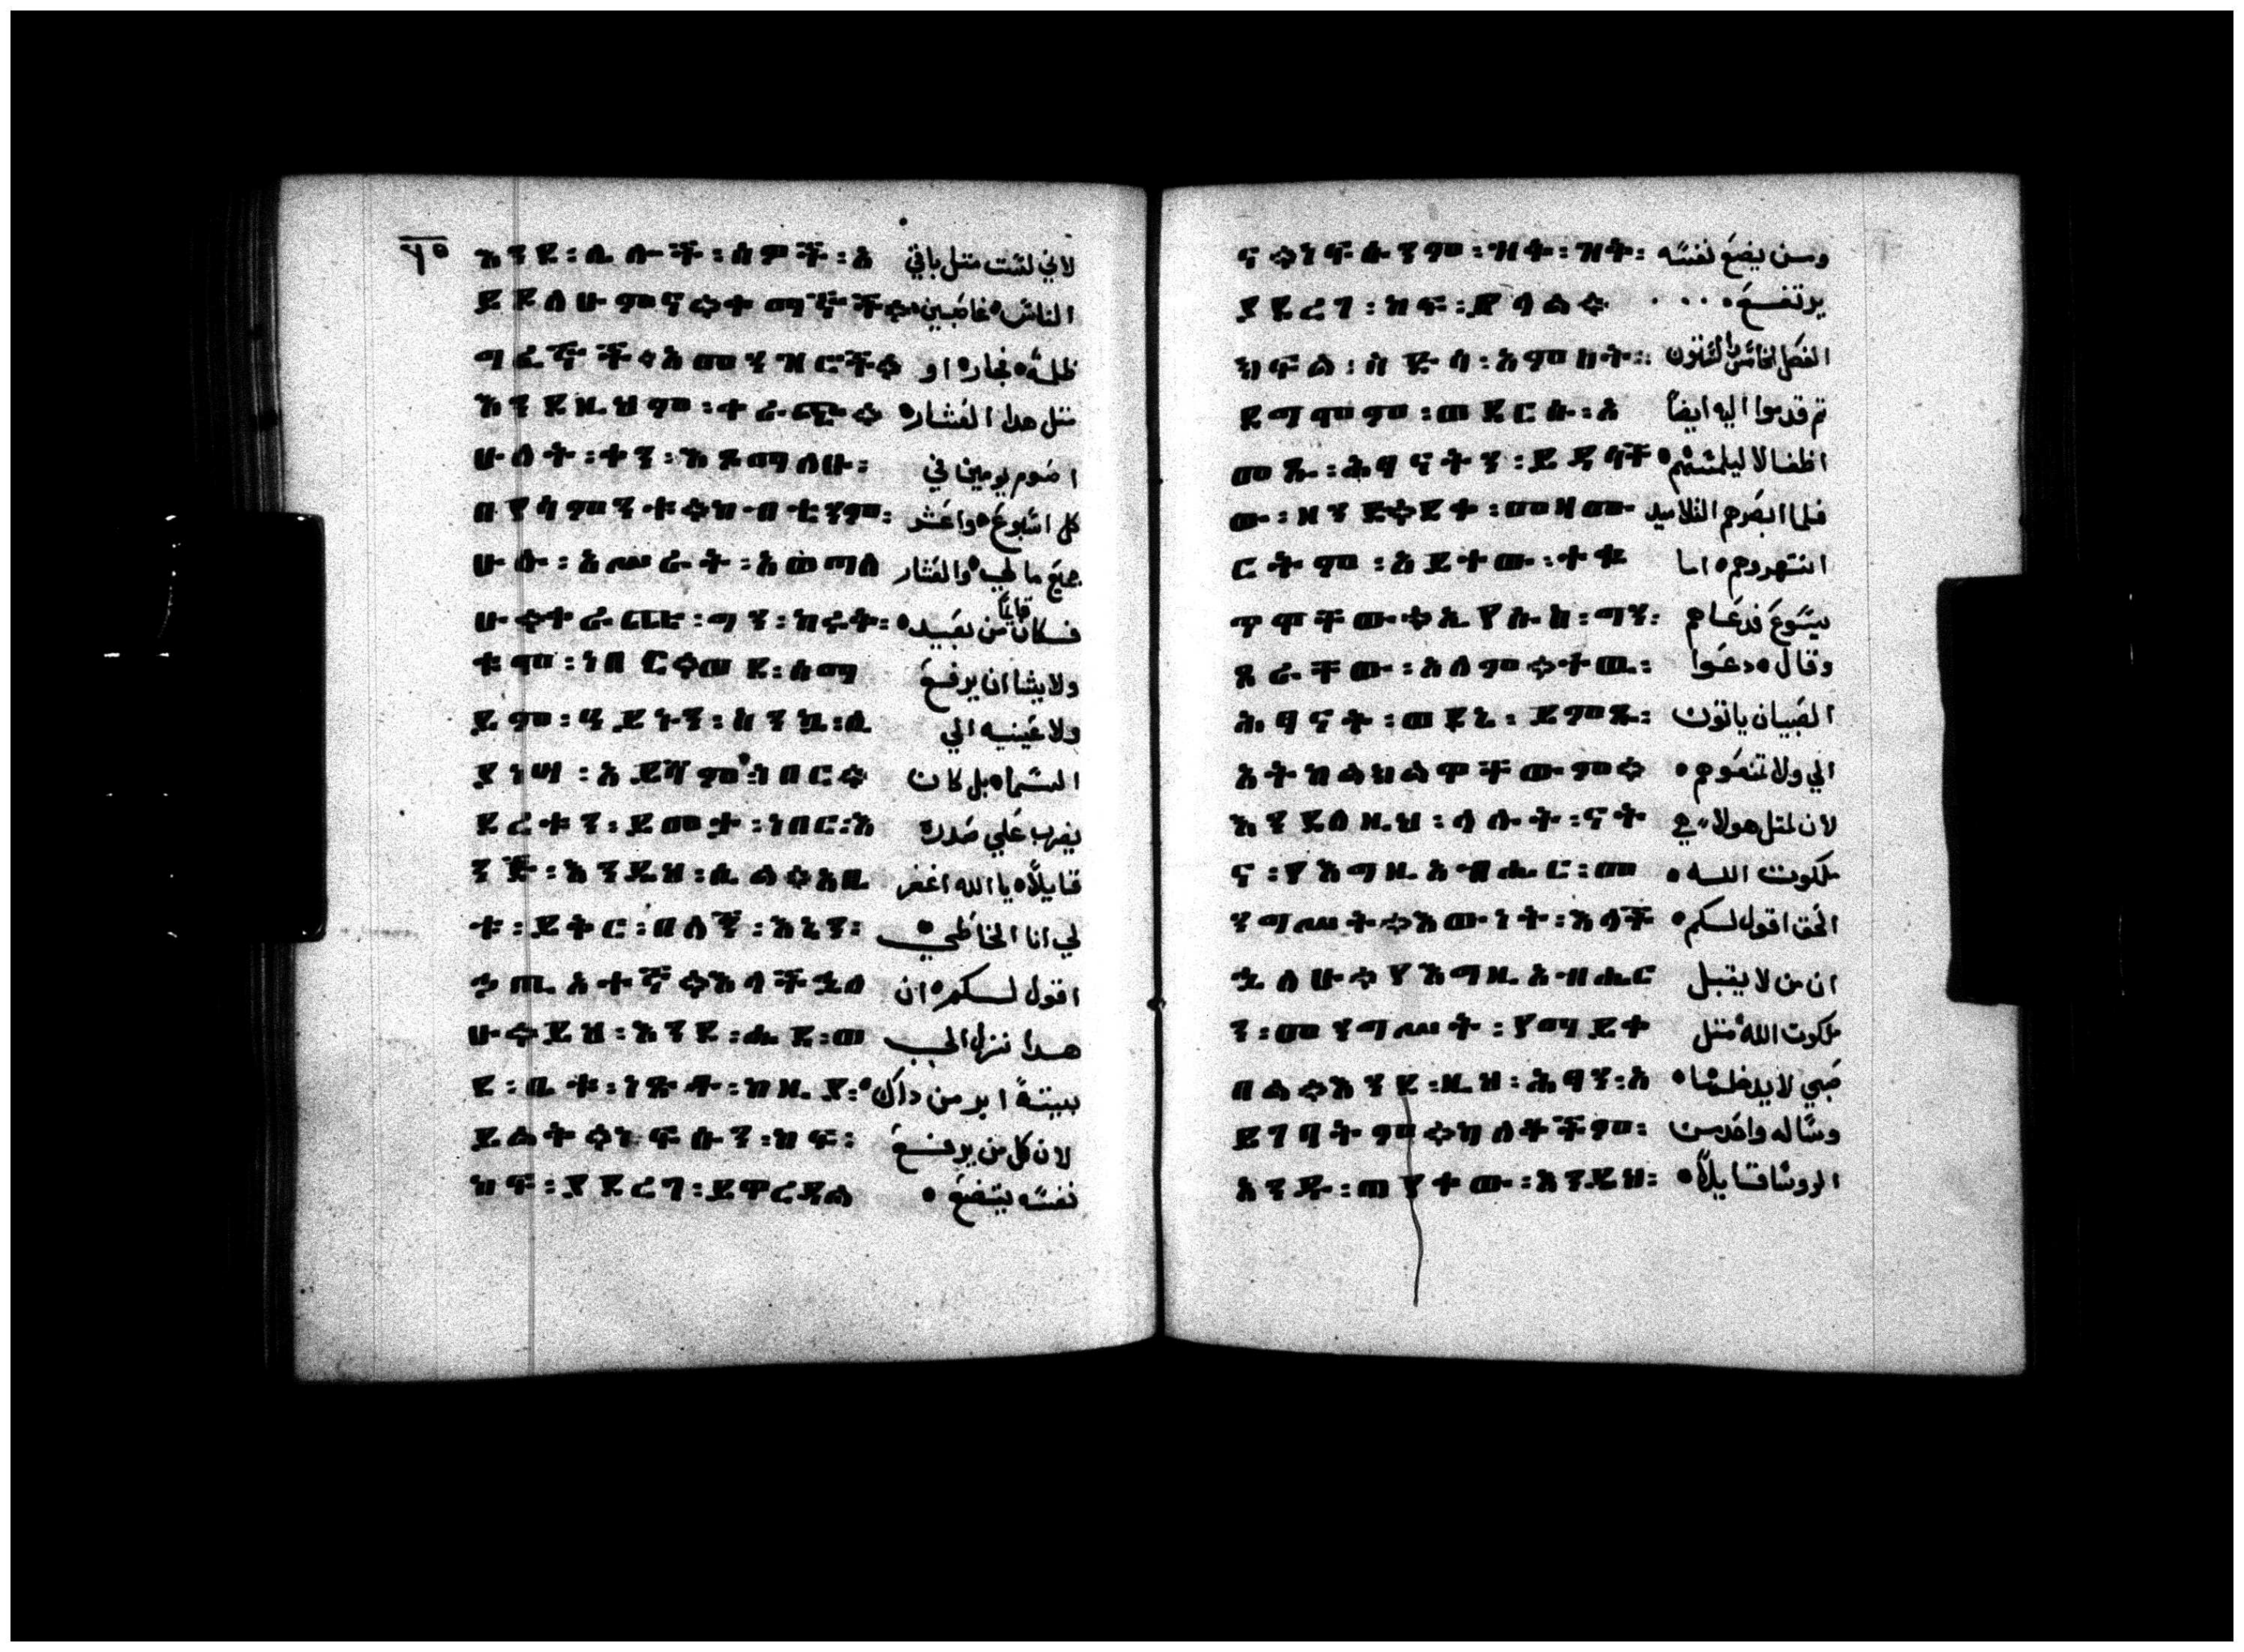 ٥٠
እንደ፡ሌሎች፡ሰዎች፡አ لاني لست متل باقي
ይደለሁምና።ቀማኞች። الناس غاصبين
ግፈኞች።አመንዝሮች። ظلمة فجار او
እንደዚህም፡ቀራጭ። متل هدا العشار
ሁለት፡ቀን፡እጾማለሁ፡ اصوم يومين في
በየሳምንቱ።ከብቴንም፡ كل اسبوع واعشر
ሁሉ፡አሥራት፡አወጣለ جميع ما لي والعشار
ሁ።ቀራጭ፡ግን፡ከሩቅ፡ فكان قايما من بعيد
ቁሞ፡ነበር።ወደ፡ሰማ ولا يشا ان يرفع
ይም፡ዓይኑን፡እንኳ፡ሊ ولا عينيه الي
ያነሣ፡አይሻም፡ነበር። السما بل كان
ደረቱን፡ይመታ፡ነበር፡እ يضرب علي صدره
ንጅ፡እንዲህ፡ሲል።አቤ قايلا يا الله اغفر
ቱ፡ይቅር፡በለኝ፡እኔን፡ لي انا الخاطي
ኃጢአተኛ።እላችኋለ اقول لكم ان
ሁ።ይህ፡እንደ፡ሔደ፡ወ هدا نزل الي
ደ፡ቤቱ፡ነጽቶ፡ከዚያ፡ بيته ابر من داك
ይልቅ።ነፍሱን፡ከፍ፡ لان كل من يرفع
ከፍ፡ያደረገ፡ይዋረዳል نفسه يتضع
ና።ነፍሱንም፡ዝቅ፡ዝቅ፡ ومن يضع نفسه
ያደረገ፡ከፍ፡ይላል። يرتفع
ክፍል፡ስድሳ፡አምስት፡ الفصل الخامس والستون
ደግሞም፡ወደርሱ፡አ تم قدموا اليه ايضا
መጡ፡ሕፃናትን፡ይዳሳቸ اطفالا ليلمسهم
ው፡ዘንድ።ደቀ፡መዛሙ فلما ابصرهم التلاميد
ርትም፡አይተው፡ተቈ انتهروهم اما
ጥዋቸው።ኢየሱስ፡ግን፡ يسوع فدعاهم
ጸራቸው፡አለም።ተዉ፡ وقال دعوا
ሕፃናት፡ወደኔ፡ይምጡ፡ الصبيان ياتون
አትከልክልዋቸውም። الي ولا تمنعوهم
እንደለዚህ፡ላሉት፡ናት لان لمتل هولاء هي
ና፡የእግዚአብሔር፡መ ملكوت الله
ንግሥት።እውነት፡እላች الحق اقول لكم
ኋለሁ።የእግዚአብሔር ان من لا يقبل
ን፡መንግሥት፡የማይቀ ملكوت الله متل
በል።እንደ፡ዚህ፡ሕፃን፡አ صبي لا يدخلها
ይገባትም።ከለቆችም፡ وساله واحد من
አንዱ፡ጠየቀው፡እንዲህ፡ الروسا قايلا